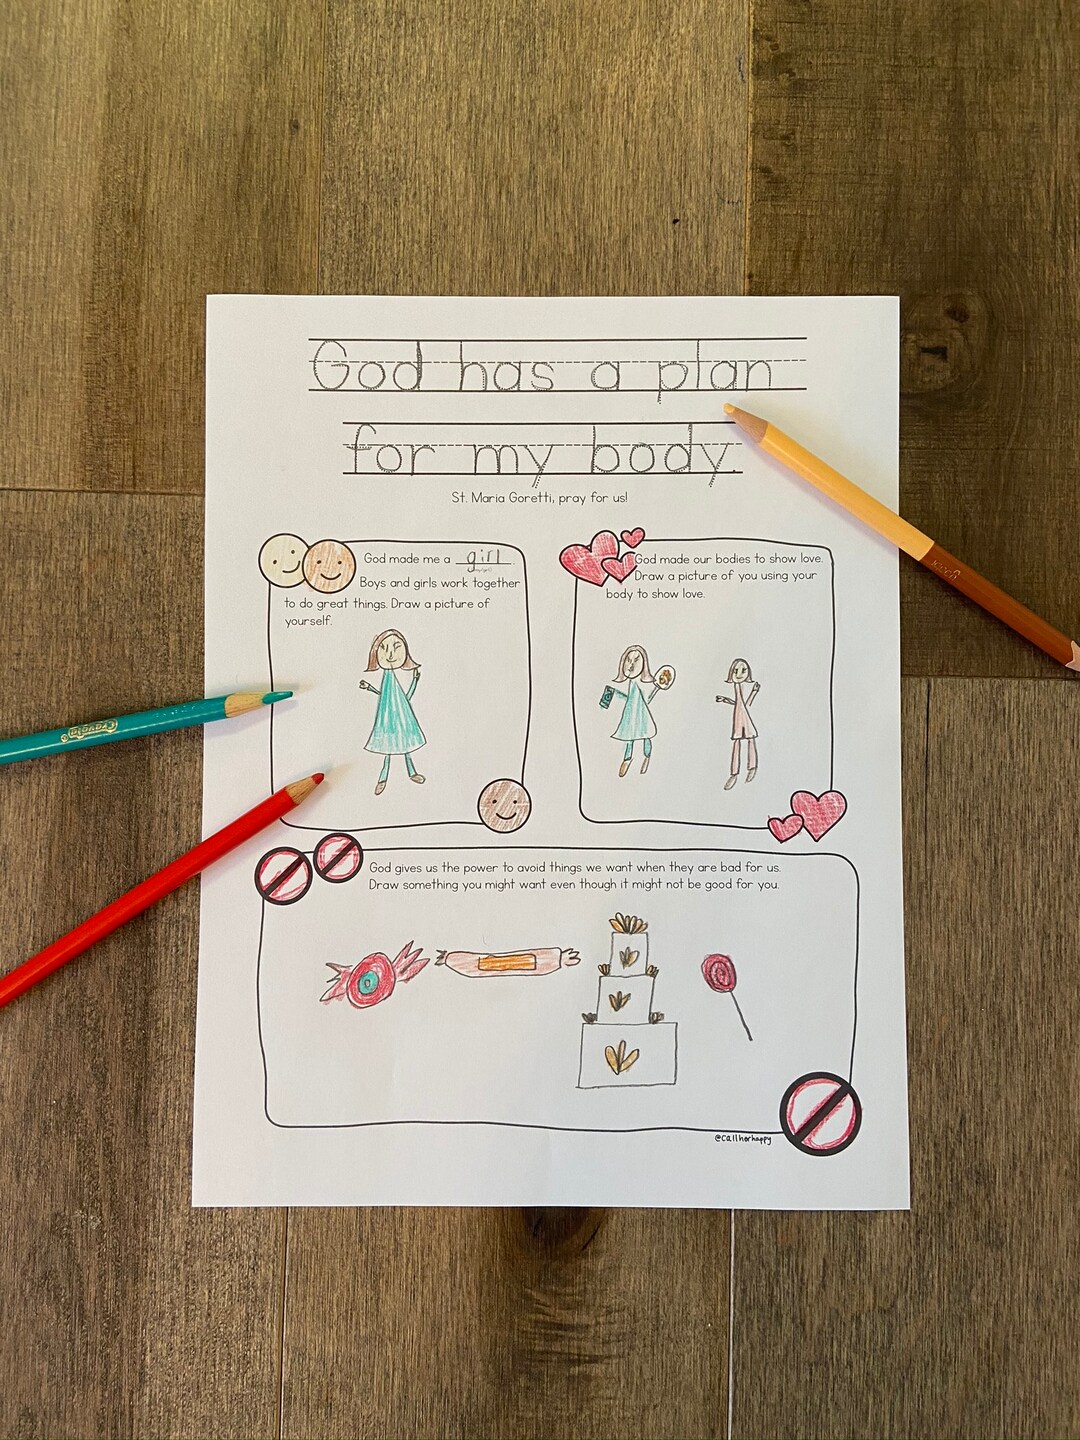 God has a plan
for my body.
St. Maria Goretti, pray for us!
God made me a girl
Boys and girls work together
to do great things. Draw a picture of
yourself.
God made our bodies to show love.
Draw a picture of you using your
body to show love.
God gives us the power to avoid things we want when they are bad for us.
Draw something you might want even though it might not be good for you.
@callherhappy
Crayola